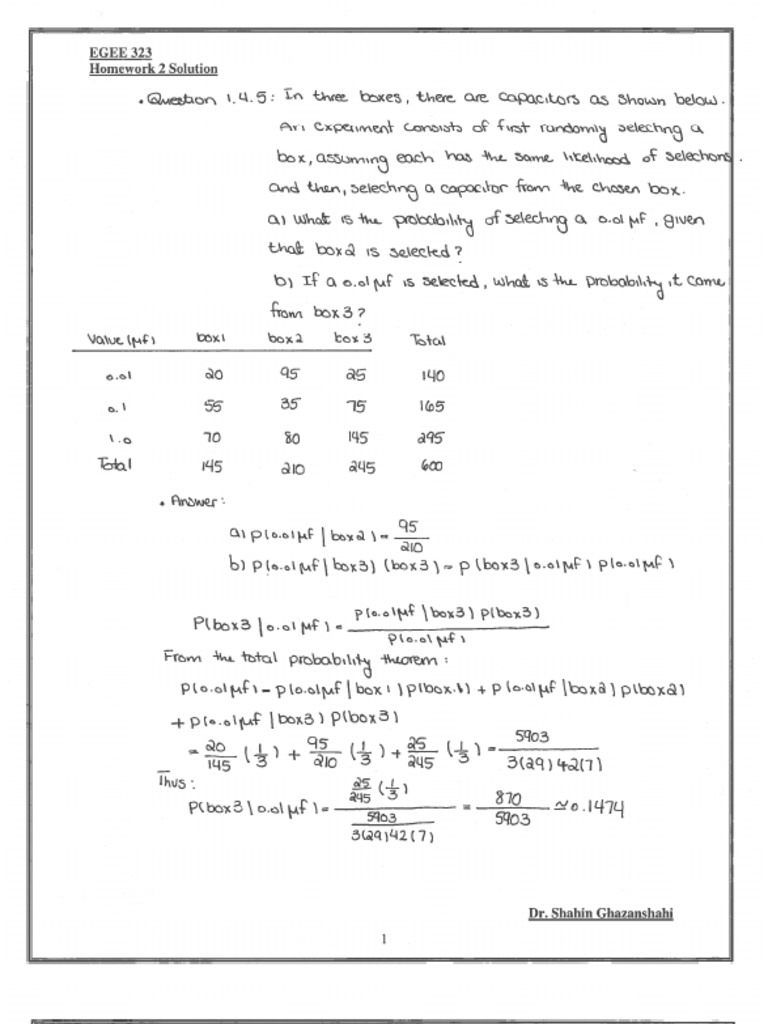 EGEE 323
Homework 2 Solution
• Question 1.4.5: In three boxes, there are capacitors as shown below.
An experiment consists of first randomly selecting a
box, assuming each has the same likelihood of selections.
and then, selecting a capacitor from the chosen box.
a) What is the probability of selecting a 0.01 μf, given
that box2 is selected?
b) If a 0.01 μf is selected, what is the probability it came
from box 3?
Value (μf) box1 box2 box 3 Total
0.01 20 95 25 140
0.1 55 35 75 165
1.0 70 80 145 295
Total 145 210 245 600
• Answer:
a) P(0.01 μf | box2) = 95/210
b) P(0.01 μf | box3) (box3) = P(box3 | 0.01 μf) P(0.01 μf)
P(box3 | 0.01 μf) = P(0.01 μf | box3) P(box3) / P(0.01 μf)
From the total probability theorem:
P(0.01 μf) = P(0.01 μf | box 1) P(box 1) + P(0.01 μf | box2) P(box2)
+ P(0.01 μf | box3) P(box3)
= 20/145 (1/3) + 95/210 (1/3) + 25/245 (1/3) = 5903 / 3(29)42(7)
Thus:
P(box3 | 0.01 μf) = 25/245 (1/3) / 5903 / 3(29)42(7) = 870/5903 ≃ 0.1474
Dr. Shahin Ghazanshahi
1